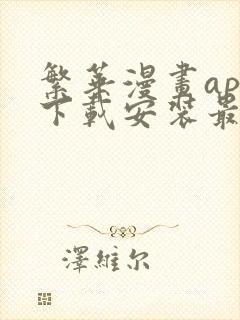 繁华漫畫ap
下載安裝最
澤維尔